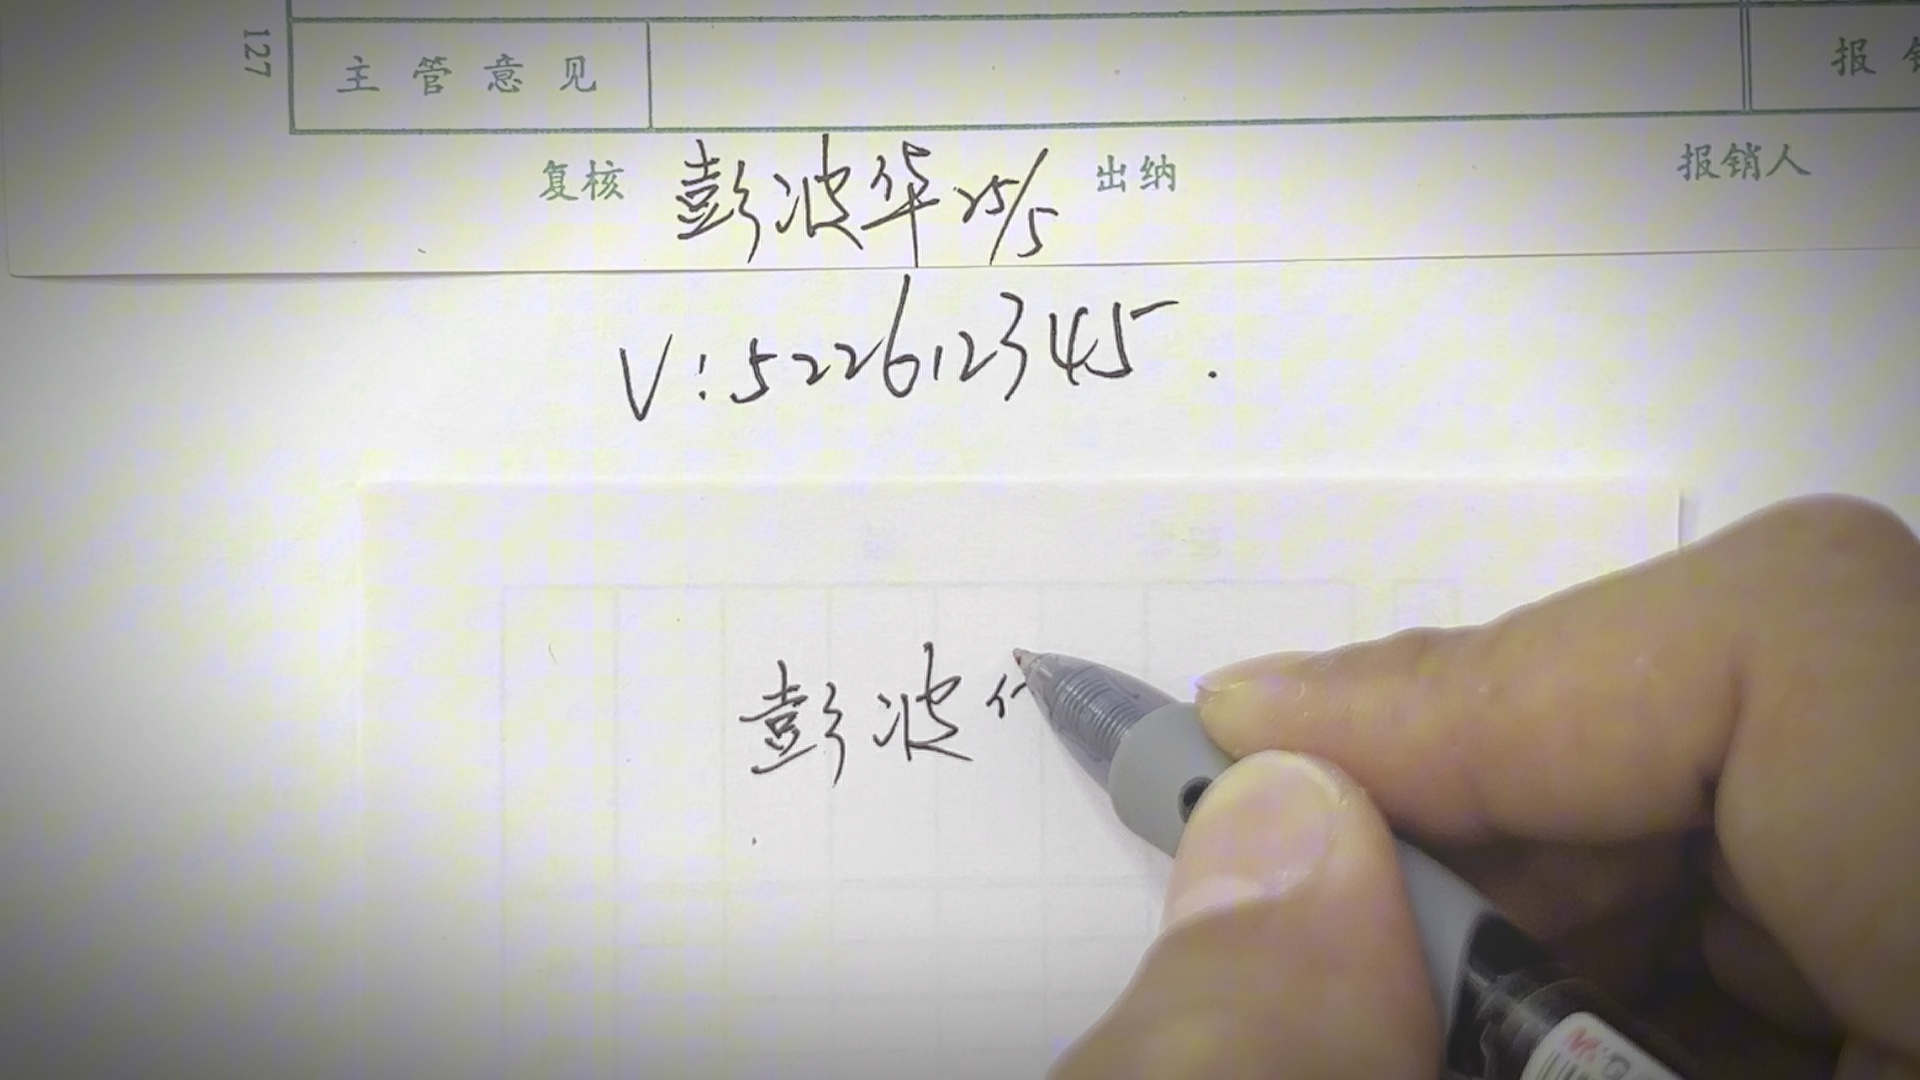 127
主管意见
报销
复核 彭波华 25/5 出纳 报销人
V:522612345.
彭波